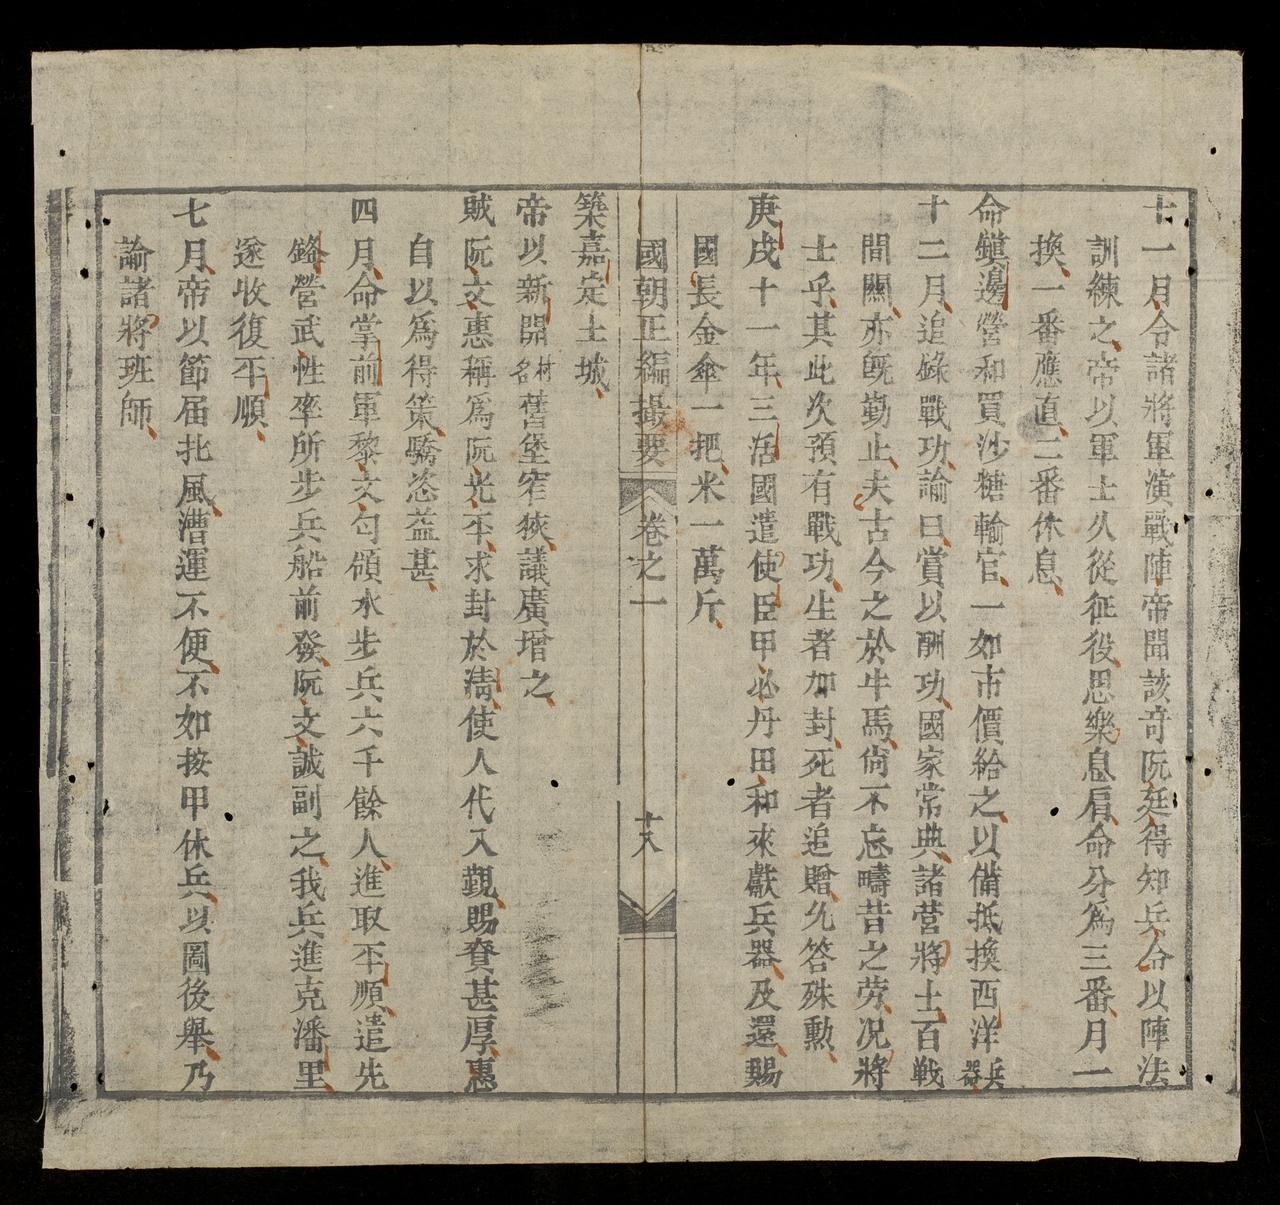 十一月令諸將軍演戰陣帝聞該奇阮廷得知兵令以陣法
訓練之帝以軍士久從征役思樂息肩命分爲三番月一
換一番應直二番休息
命鎭邊營和買沙糖輸官一如市價給之以備抵換西洋兵器
十二月追錄戰功諭曰賞以酬功國家常典諸營將士百戦
間關亦旣勤止夫古今之於牛馬尙不忘疇昔之劳况將
士乎其此次預有戰功生者加封死者追贈允答殊勳
庚戌十一年三活國遣使臣甲必丹田和來獻兵器及還賜
國長金傘一把米一萬斤
國朝正編撮要 卷之一 十八
築嘉定土城
帝以新開村名舊堡窄狹議廣增之
賊阮文惠稱爲阮光平求封於淸使人代入覲賜賚甚厚惠
自以爲得策驕恣益甚
四月命掌前軍黎文勻領水步兵六千餘人進取平順遣先
鋒營武性率所步兵船前發阮文誠副之我兵進克潘里
遂收復平順
七月帝以節届北風漕運不便不如按甲休兵以圖後舉乃
諭諸將班師